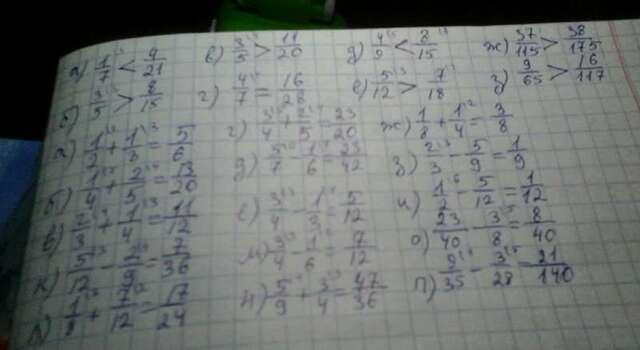 а) 1/7 < 9/21
в) 3/5 > 11/20
д) 4/9 < 8/15
ж) 37/115 > 38/175
б) 3/5 > 8/15
г) 4/7 = 16/28
е) 5/12 > 7/18
з) 9/65 > 16/117
а) 1/2 + 1/3 = 5/6
г) 3/4 + 2/5 = 23/20
ж) 1/8 + 1/4 = 3/8
б) 1/4 + 2/5 = 13/20
д) 5/7 - 1/6 = 23/42
з) 2/3 - 5/9 = 1/9
в) 2/3 + 1/4 = 11/12
е) 3/4 - 1/3 = 5/12
и) 1/2 - 5/12 = 1/12
к) 5/12 - 2/9 = 7/36
м) 3/4 - 1/6 = 7/12
о) 23/40 - 3/8 = 8/40
л) 1/8 + 7/12 = 17/24
н) 5/9 + 3/4 = 47/36
п) 9/35 - 3/28 = 21/140